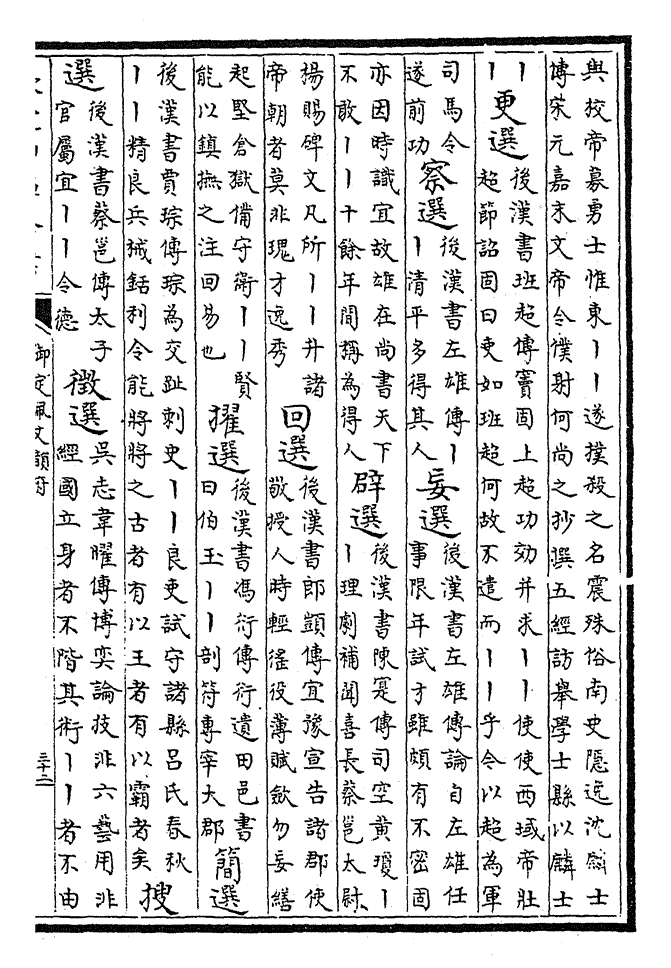 與校帝募勇士惟東丨丨遂撲殺之名震殊俗南史隱逸沈麟士
傳宋元嘉末文帝令僕射何尚之抄撰五經訪舉學士縣以麟士
丨
丨
更選
後漢書班超傳竇固上超功效并求丨丨使使西域帝壯
超節詔固曰吏如班超何故不遣而丨丨乎令以超為軍
司馬令
遂前功
察選
後漢書左雄傳丨
丨清平多得其人
妄選
後漢書左雄傳論自左雄任
事限年試才雖頗有不密固
亦因時識宜故雄在尚書天下
不敢丨丨十餘年間稱為得人
辟選
後漢書陳寔傳司空黃瓊丨
丨理劇補聞喜長蔡邕太尉
楊賜碑文凡所丨丨升諸
帝朝者莫非瑰才逸秀
回選
後漢書郎顗傳宜豫宣告諸郡使
敬授人時輕徭役薄賦斂勿妄繕
起堅倉獄備守衛丨丨賢
能以鎮撫之注回易也
擢選
後漢書馮衍傳衍遺田邑書
曰伯玉丨丨剖符專宰大郡
簡選
後漢書賈琮傳琮為交趾刺史丨丨良吏試守諸縣呂氏春秋
丨丨精良兵械銛利令能將將之古者有以王者有以霸者矣
搜
選
後漢書蔡邕傳太子
官屬宜丨丨令德
徵選
吳志韋曜傳博奕論技非六藝用非
經國立身者不階其術丨丨者不由
御定佩文韻府
三十二